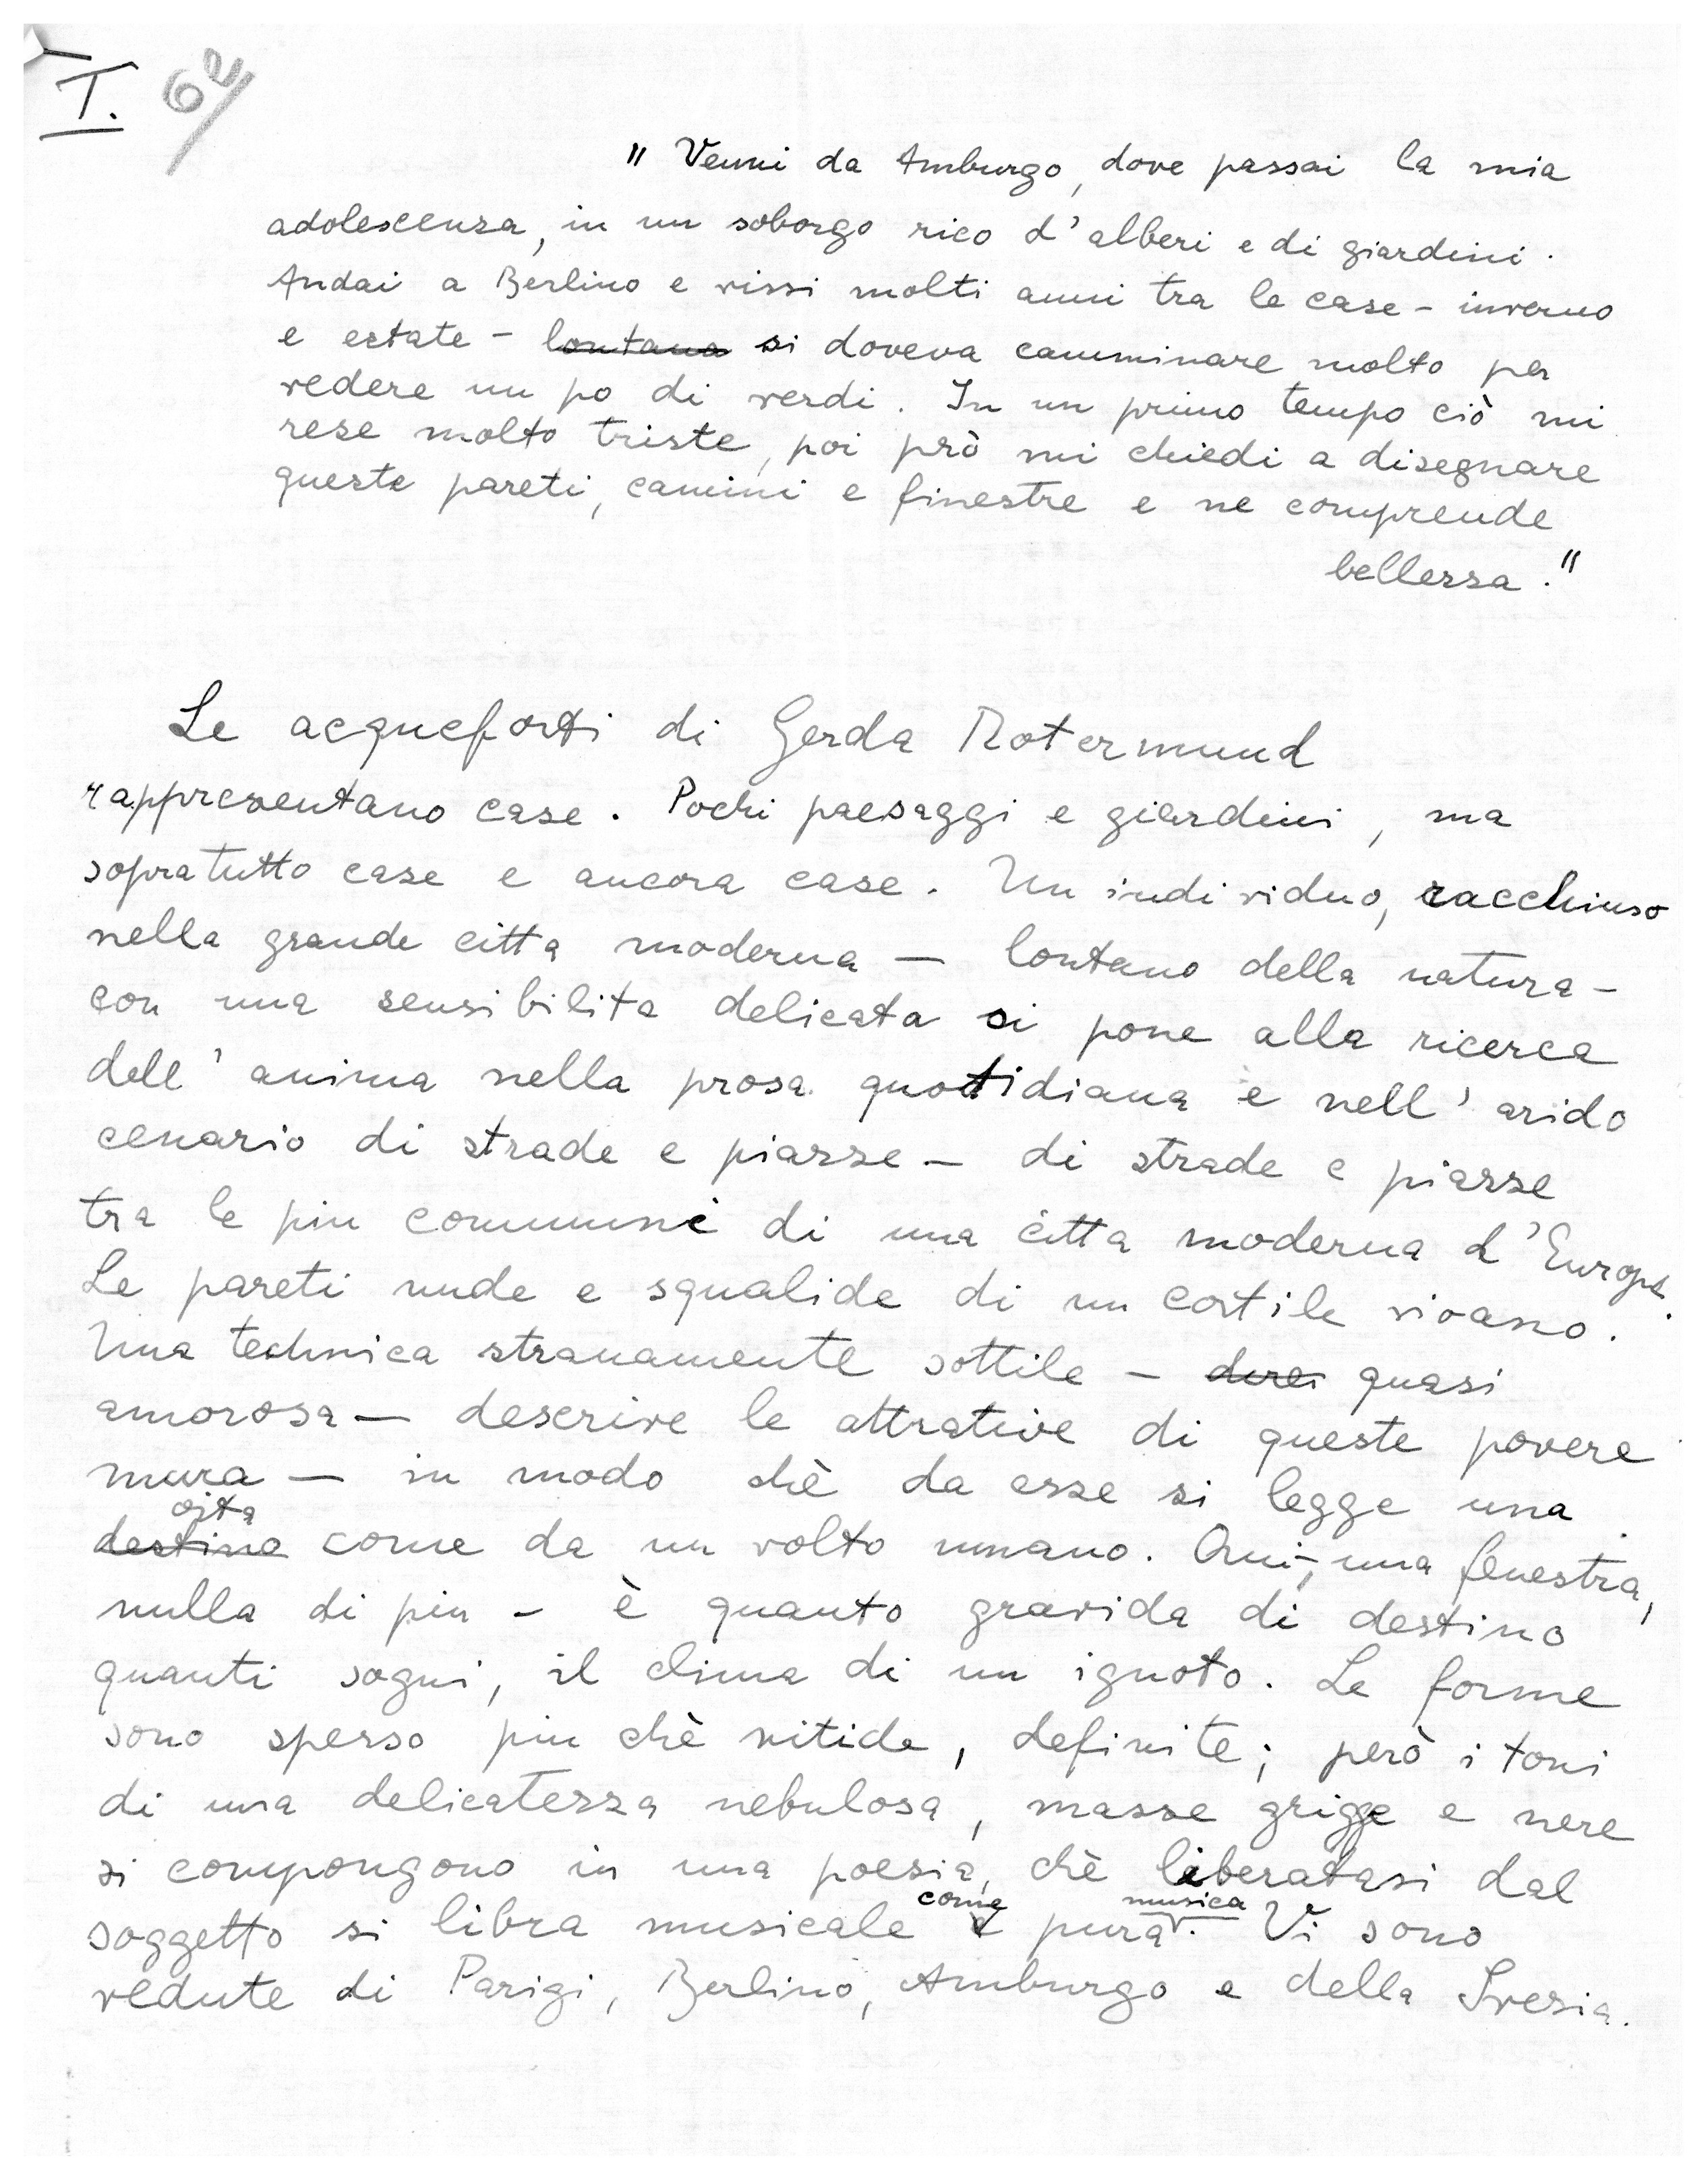 I. 62
" Venni da Amburgo, dove passai la mia
adolescenza, in un soborgo rico d'alberi e di giardini.
Andai a Berlino e vissi molti anni tra le case - inverno
e estate - lontana si doveva camminare molto per
vedere un po di verdi. In un primo tempo ciò mi
rese molto triste, poi però mi chiedi a disegnare
queste pareti, camini e finestre e ne comprende
bellezza."
Le acqueforti di Gerda Rotermund
rappresentano case. Pochi paesaggi e giardini, ma
sopratutto case e ancora case. Un individuo, racchiuso
nella grande citta moderna — lontano della natura -
con una sensibilita delicata si pone alla ricerca
dell' anima nella prosa quotidiana e nell' arido
cenario di strade e piazze - di strade e piazze
tra le piu communi di una citta moderna d'Europa.
Le pareti nude e squalide di un cortile vivano.
Una technica stranamente sottile - direi quasi
amorosa — descrive le attrative di queste povere
mura — in modo chè da esse si legge una
vita
destino come da un volto umano. Qui, una fenestra,
nulla di piu - è quanto gravida di destino
quanti sogni, il clima di un ignoto. Le forme
sono spesso piu chè nitide, definite; però i toni
di una delicatezza nebulosa, masse grigge e nere
si compongono in una poesia, chè liberatasi dal
come musica
soggetto si libra musicale e pura. Vi sono
vedute di Parigi, Berlino, Amburgo e della Svezia.